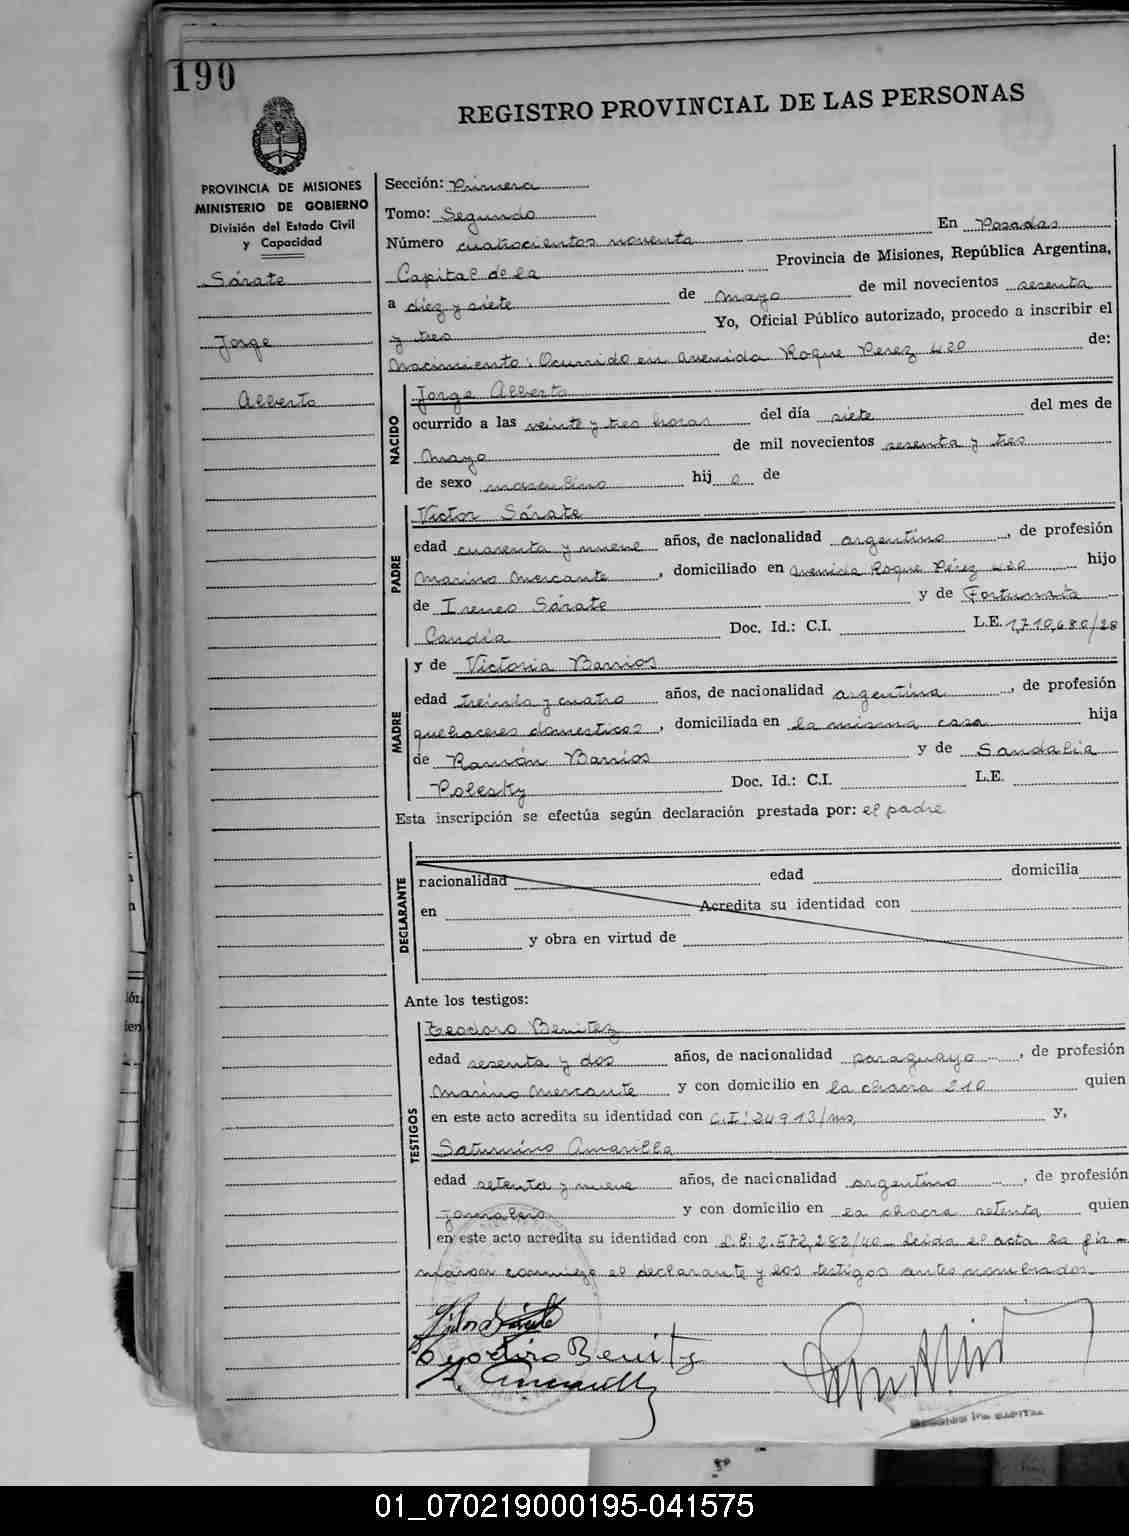 190
REGISTRO PROVINCIAL DE LAS PERSONAS
PROVINCIA DE MISIONES
MINISTERIO DE GOBIERNO
División del Estado Civil
y Capacidad
Sárate
Jorge
Alberto
Sección: Primera
Tomo: Segundo
Número cuatrocientos noventa En Posadas
Capital de la Provincia de Misiones, República Argentina,
a diez y siete de Mayo de mil novecientos sesenta
y tres Yo, Oficial Público autorizado, procedo a inscribir el
Nacimiento: Ocurrido en Avenida Roque Perez 420 de:
NACIDO
Jorge Alberto
ocurrido a las veinte y tres horas del día siete del mes de
Mayo de mil novecientos sesenta y tres
de sexo masculino hij o de
PADRE
Victor Sárate
edad cuarenta y nueve años, de nacionalidad argentino, de profesión
Marino Mercante, domiciliado en Avenida Roque Pérez 420 hijo
de Ireneo Sárate y de Fortunata
Candia Doc. Id.: C.I. L.E. 1,710,680/28
MADRE
y de Victoria Barrios
edad treinta y cuatro años, de nacionalidad argentina, de profesión
quehaceres domesticos, domiciliada en la misma casa hija
de Ramón Barrios y de Sandalia
Polesky Doc. Id.: C.I. L.E.
Esta inscripción se efectúa según declaración prestada por: el padre
DECLARANTE
nacionalidad edad domicilia
en Acredita su identidad con
y obra en virtud de
Ante los testigos:
TESTIGOS
Teodoro Benitez
edad sesenta y dos años, de nacionalidad paraguayo, de profesión
Marino Mercante y con domicilio en la chacra 210 quien
en este acto acredita su identidad con C.I: 24913/ms, y,
Saturnino Amarilla
edad setenta y nueve años, de nacionalidad argentino, de profesión
jornalero y con domicilio en la chacra setenta quien
en este acto acredita su identidad con L.E: 2.572,282/40_ Leida el acta la fir-
maron conmigo el declarante y los testigos antes nombrados_
Teodoro Benitz
01_070219000195-041575